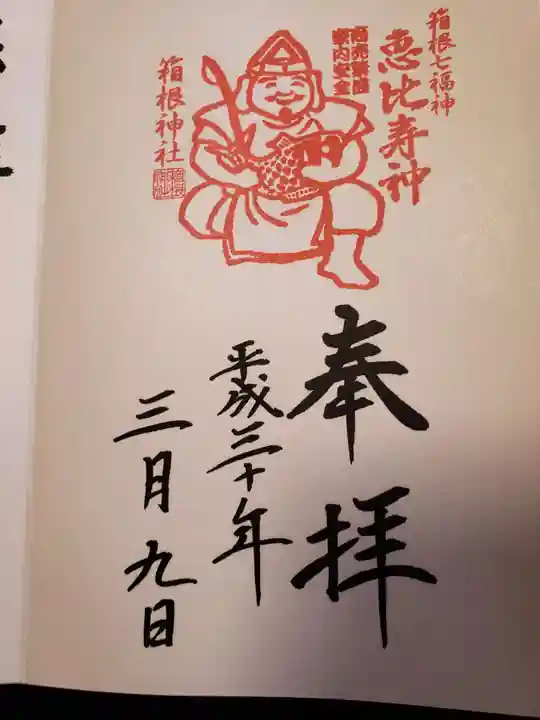 箱根七福神
恵比寿神
商売繁昌
家内安全
箱根神社
奉拝
平成三十年
三月九日